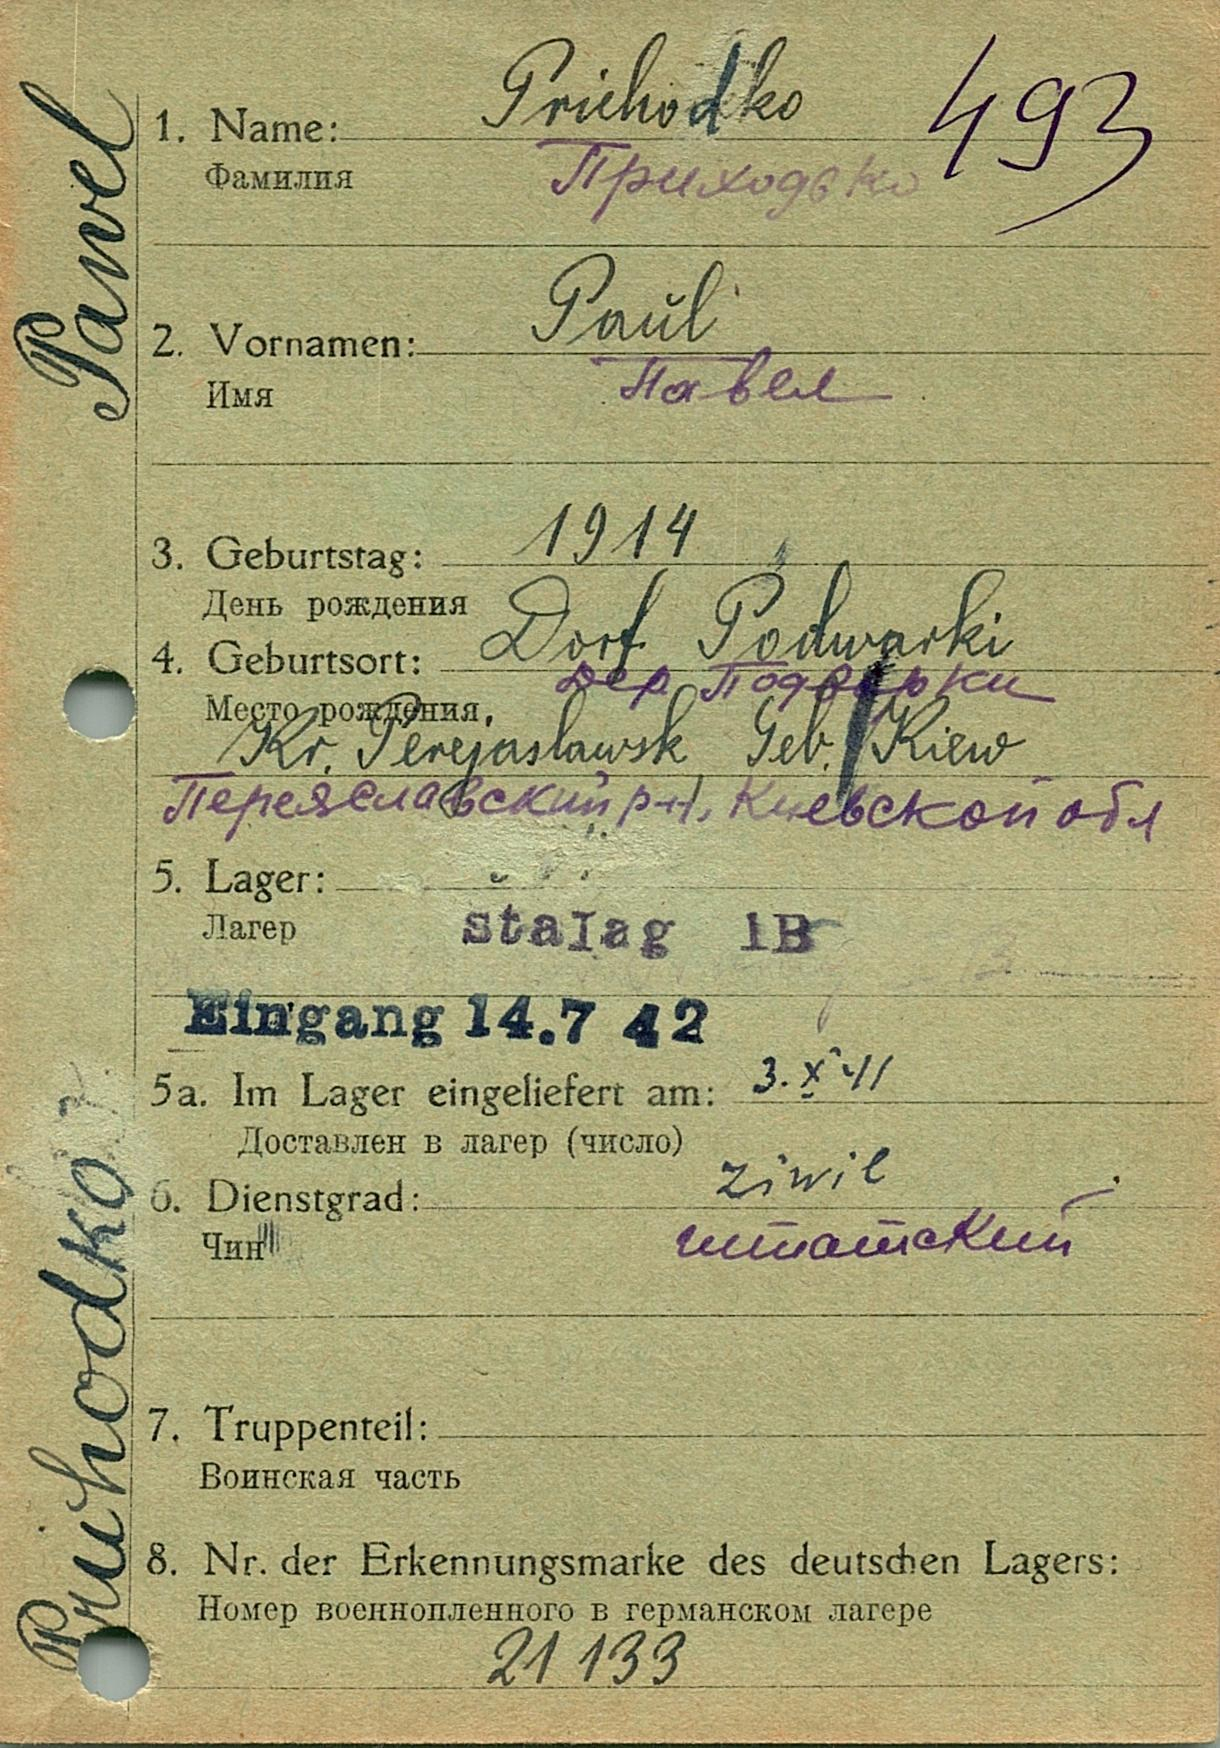 Prichodko 493
1. Name:
Приходько
Фамилия
Paul
2. Vornamen:
Павел
Имя
1914
3. Geburtstag:
День рождения
Dorf Podwarki
4. Geburtsort:
дер Подварки
Место рождения,
Kr. Perejaslawsk Geb. Kiew
Переяславский р-н, Киевской обл
5. Lager:
Лагер
stalag 1B
Eingang 14.7 42
5a. Im Lager eingeliefert am: 3. X 41
Доставлен в лагер (число)
6. Dienstgrad: Ziwil
Чин штатский
7. Truppenteil:
Воинская часть
8. Nr. der Erkennungsmarke des deutschen Lagers:
Номер военнопленного в германском лагере
21 133
Prichodko Pawel